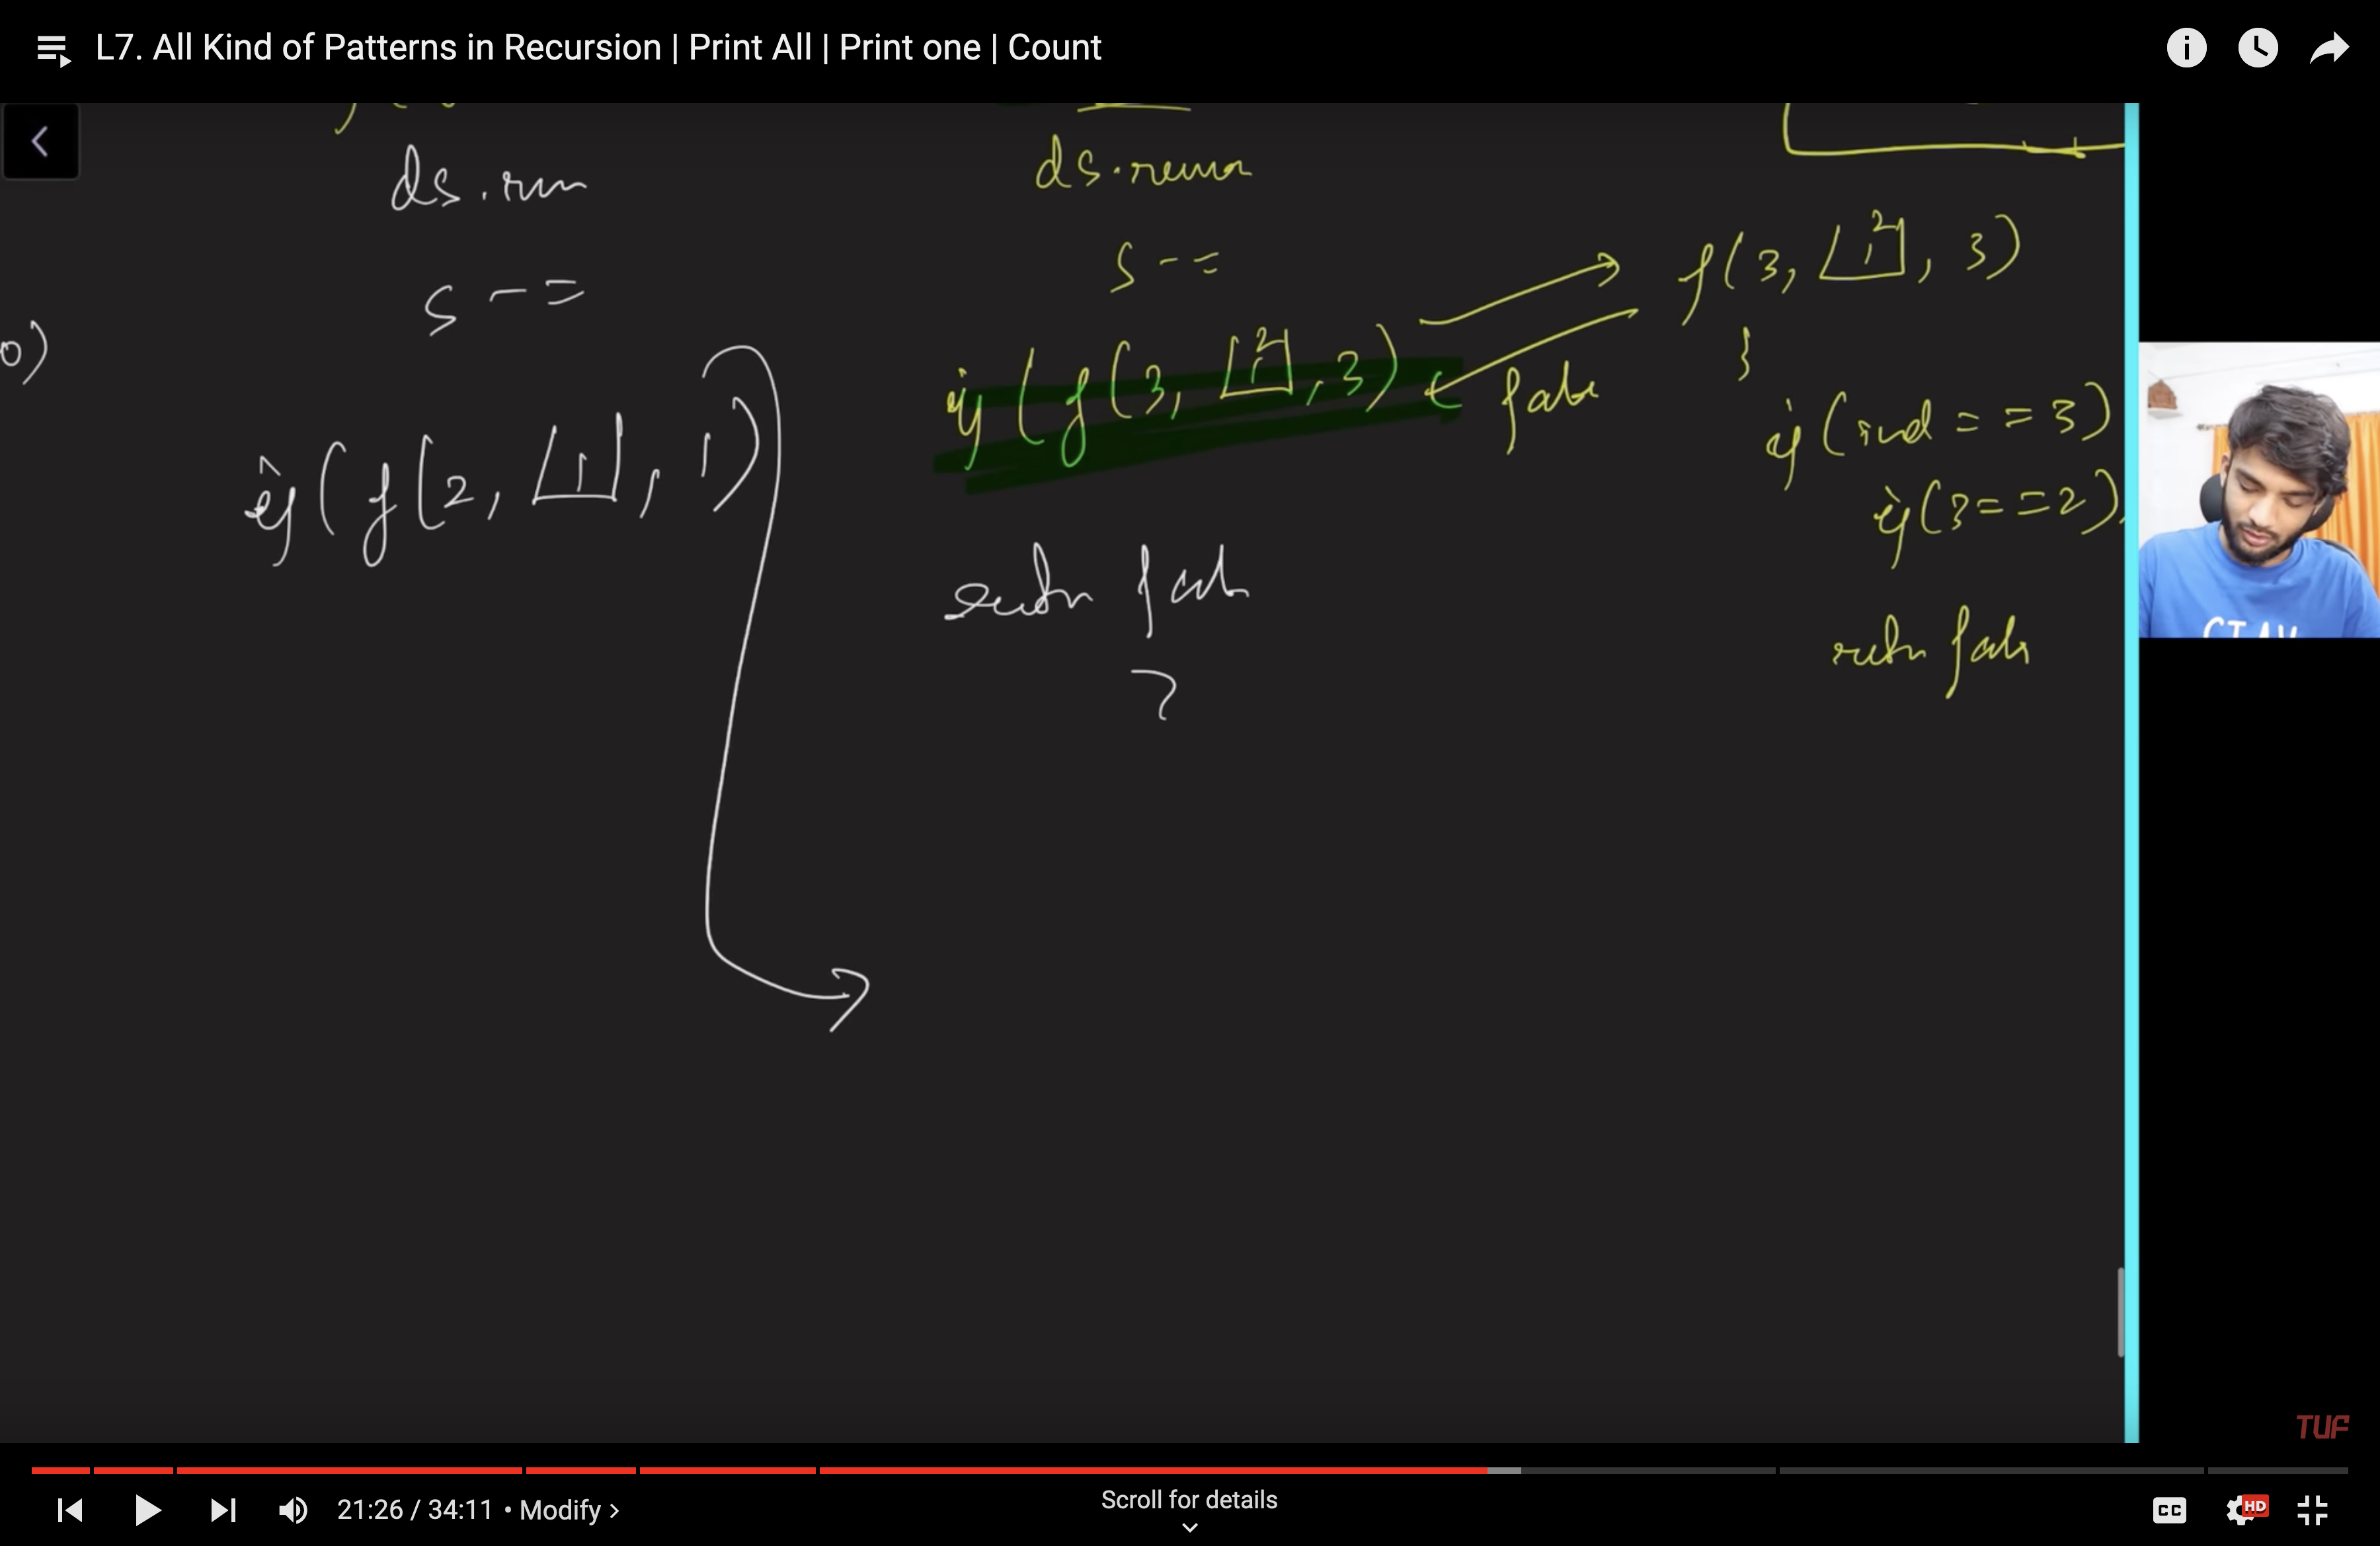 L7. All Kind of Patterns in Recursion | Print All | Print one | Count
ds.rem
s -=
0)
if (f(2, [1], 1)
ds.remo
s -=
if (f(3, [1 2], 3)
false
return false
f(3, [1 2], 3)
}
if (ind == 3)
if (3 == 2)
return false
TUF
21:26 / 34:11 • Modify >
Scroll for details
CC
HD